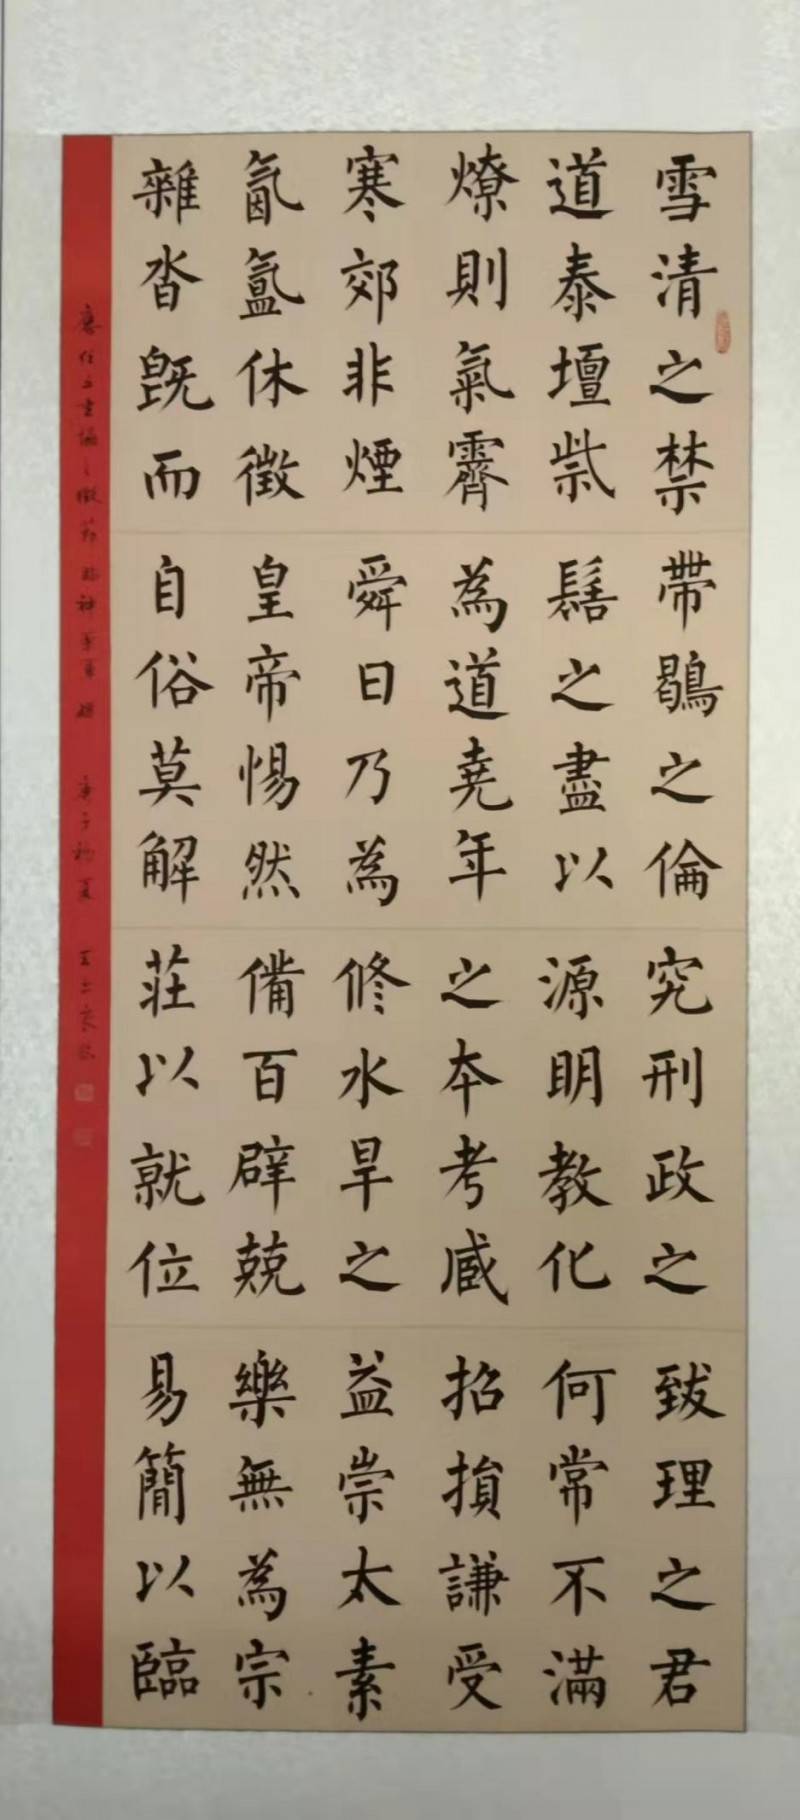 雪清之禁
道泰壇祡
燎則氣霽
寒郊非煙
氤氳休徵
雜沓既而
帶鶡之倫
髻之盡以
為道堯年
舜日乃為
皇帝惕然
自俗莫解
究刑政之
源明教化
之本考臧
修水旱之
備百辟兢
莊以就位
致理之君
何常不滿
招損謙受
益崇太素
樂無為宗
易簡以臨
臨神策軍碑 庚子初夏